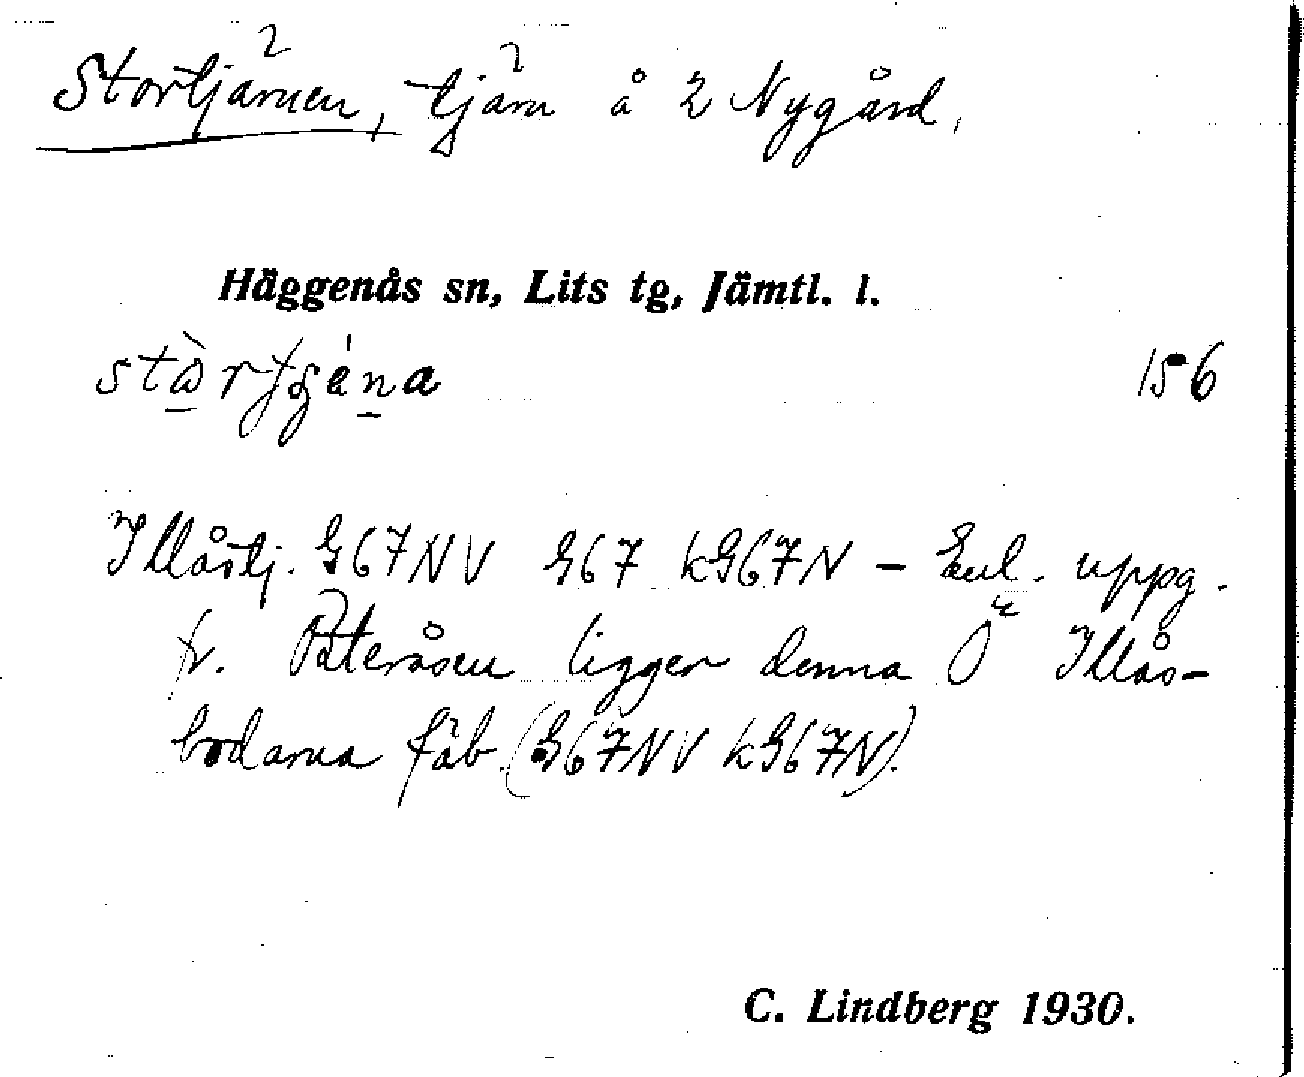 Stortjärnen, tjärn å 2 Nygård.
Häggenås sn, Lits tg, Jämtl. l.
156
Illåstj. G67NV G67 kG67N – Enl. uppg.
fr. Pateråsen ligger denna Ö Illås-
bodarna fäb. (G67NV kG67N).
C. Lindberg 1930.